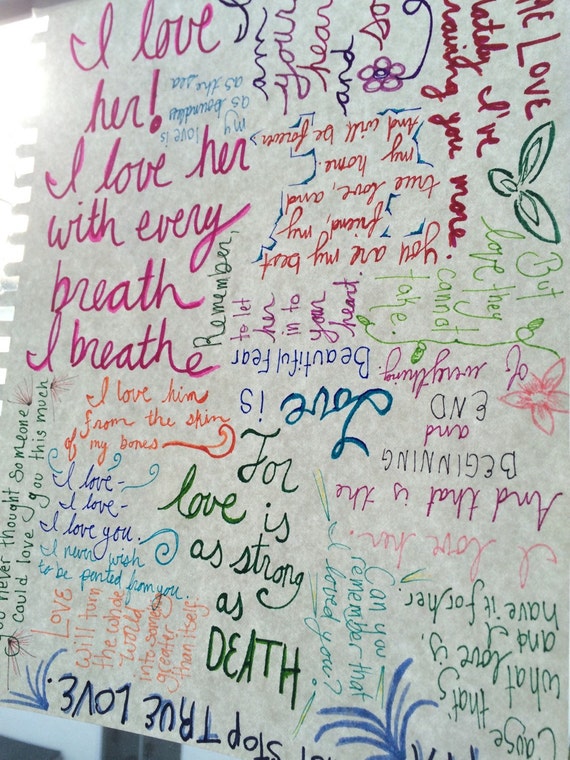 I love
her!
I love her
with every
breath
I breathe
my love is
as boundless
as the sea
am
your
hear
and
so
ME LOVE
lately I've
craving you more
you are my best
friend, my
true love, and
my home.
And will be forever
Remember,
to let
her
in to
your
heart.
But
love they
cannot
take.
Love is
Beautiful Fear
I love her.
And that is the
BEGINNING
and
END
of everything
I love him
from the skin
of my bones
I love-
I love-
I love you.
I never wish
to be parted from you.
never thought someone
could love you this much
LOVE
will turn
the whole
world
into something
greater
than itself
For
love is
as strong
as
DEATH
Can you
remember that
I loved you?
Cause that's
what love is,
and I
have it for her.
Stop TRUE LOVE.